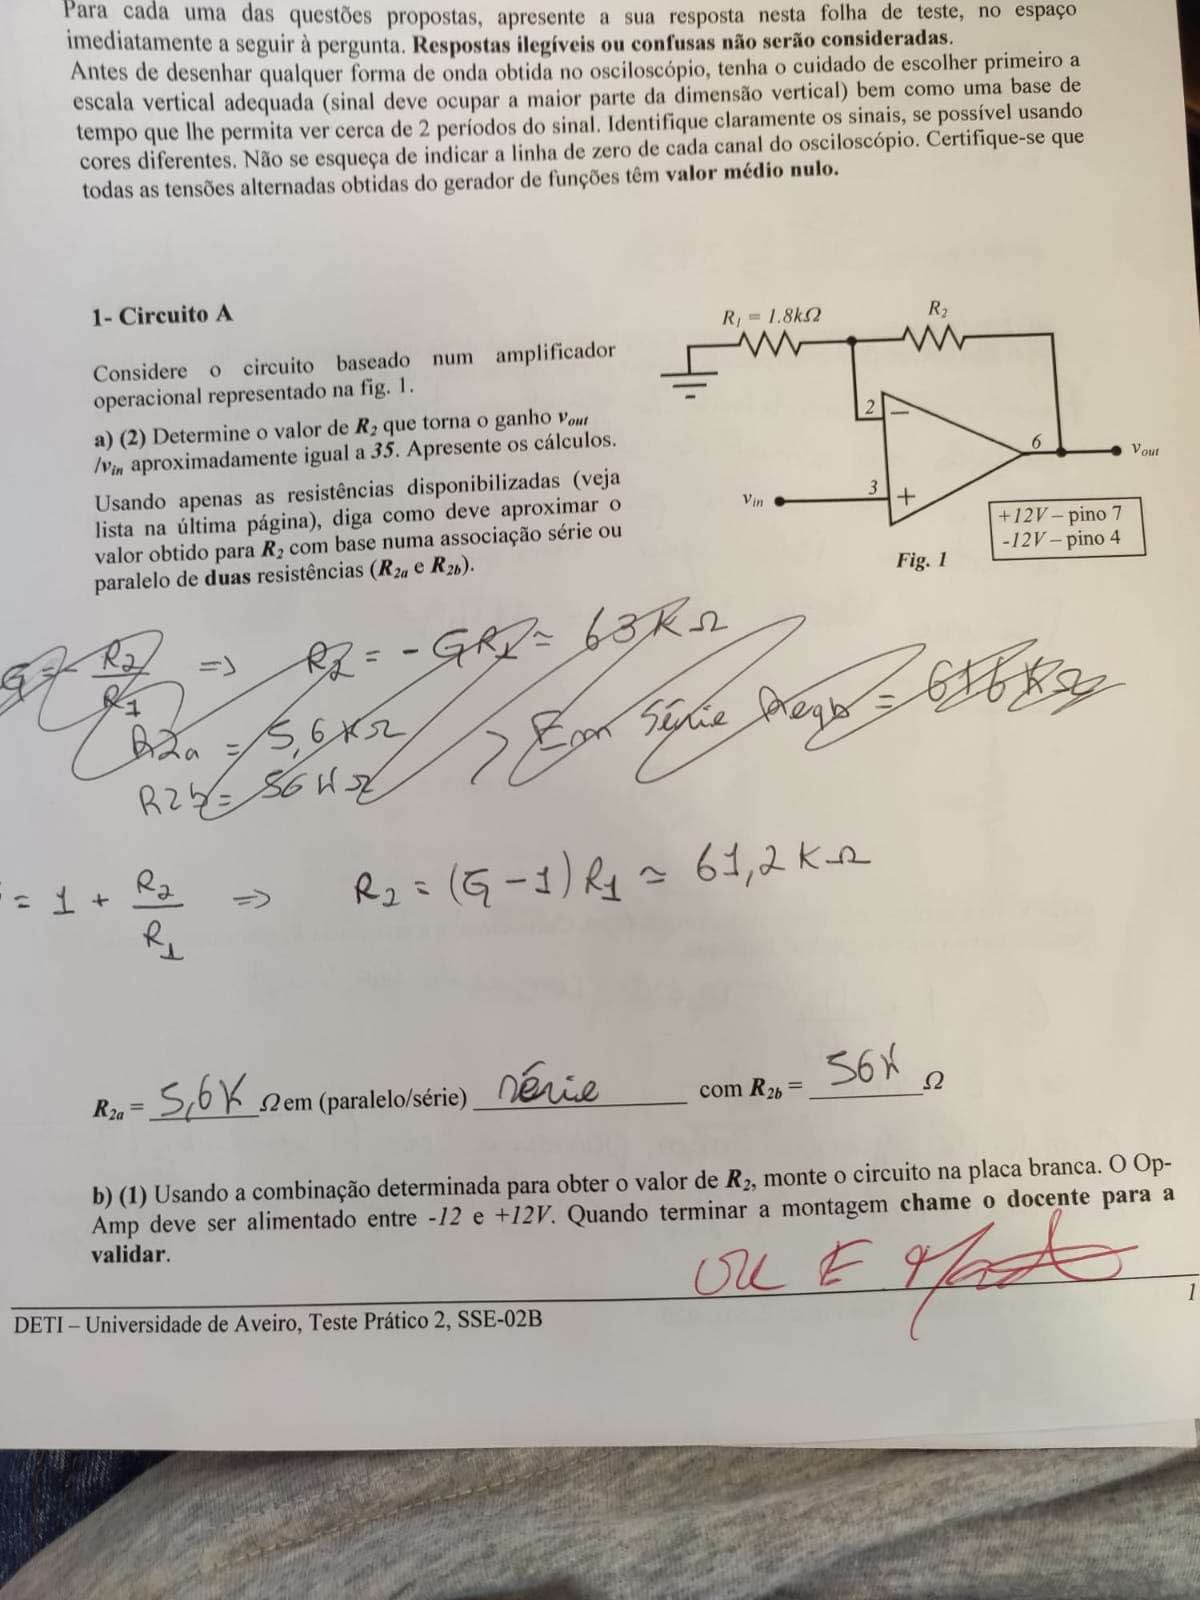 Para cada uma das questões propostas, apresente a sua resposta nesta folha de teste, no espaço
imediatamente a seguir à pergunta. Respostas ilegíveis ou confusas não serão consideradas.
Antes de desenhar qualquer forma de onda obtida no osciloscópio, tenha o cuidado de escolher primeiro a
escala vertical adequada (sinal deve ocupar a maior parte da dimensão vertical) bem como uma base de
tempo que lhe permita ver cerca de 2 períodos do sinal. Identifique claramente os sinais, se possível usando
cores diferentes. Não se esqueça de indicar a linha de zero de cada canal do osciloscópio. Certifique-se que
todas as tensões alternadas obtidas do gerador de funções têm valor médio nulo.
1- Circuito A
Considere o circuito baseado num amplificador
operacional representado na fig. 1.
a) (2) Determine o valor de R2 que torna o ganho vout
/vin aproximadamente igual a 35. Apresente os cálculos.
Usando apenas as resistências disponibilizadas (veja
lista na última página), diga como deve aproximar o
valor obtido para R2 com base numa associação série ou
paralelo de duas resistências (R2a e R2b).
R1 = 1.8kΩ
R2
2
−
6
vout
vin
3
+
+12V – pino 7
-12V – pino 4
Fig. 1
G = - R2/R1 => R2 = - GR1 ≃ 63 KΩ
R2a = 5,6 KΩ
R2b = 56 KΩ
> Em série
= 61,6 KΩ
= 1 + R2/R1 => R2 = (G - 1) R1 ≃ 61,2 KΩ
R2a = 5,6K Ω em (paralelo/série) série com R2b = 56K Ω
b) (1) Usando a combinação determinada para obter o valor de R2, monte o circuito na placa branca. O Op-
Amp deve ser alimentado entre -12 e +12V. Quando terminar a montagem chame o docente para a
validar.
DETI – Universidade de Aveiro, Teste Prático 2, SSE-02B
1